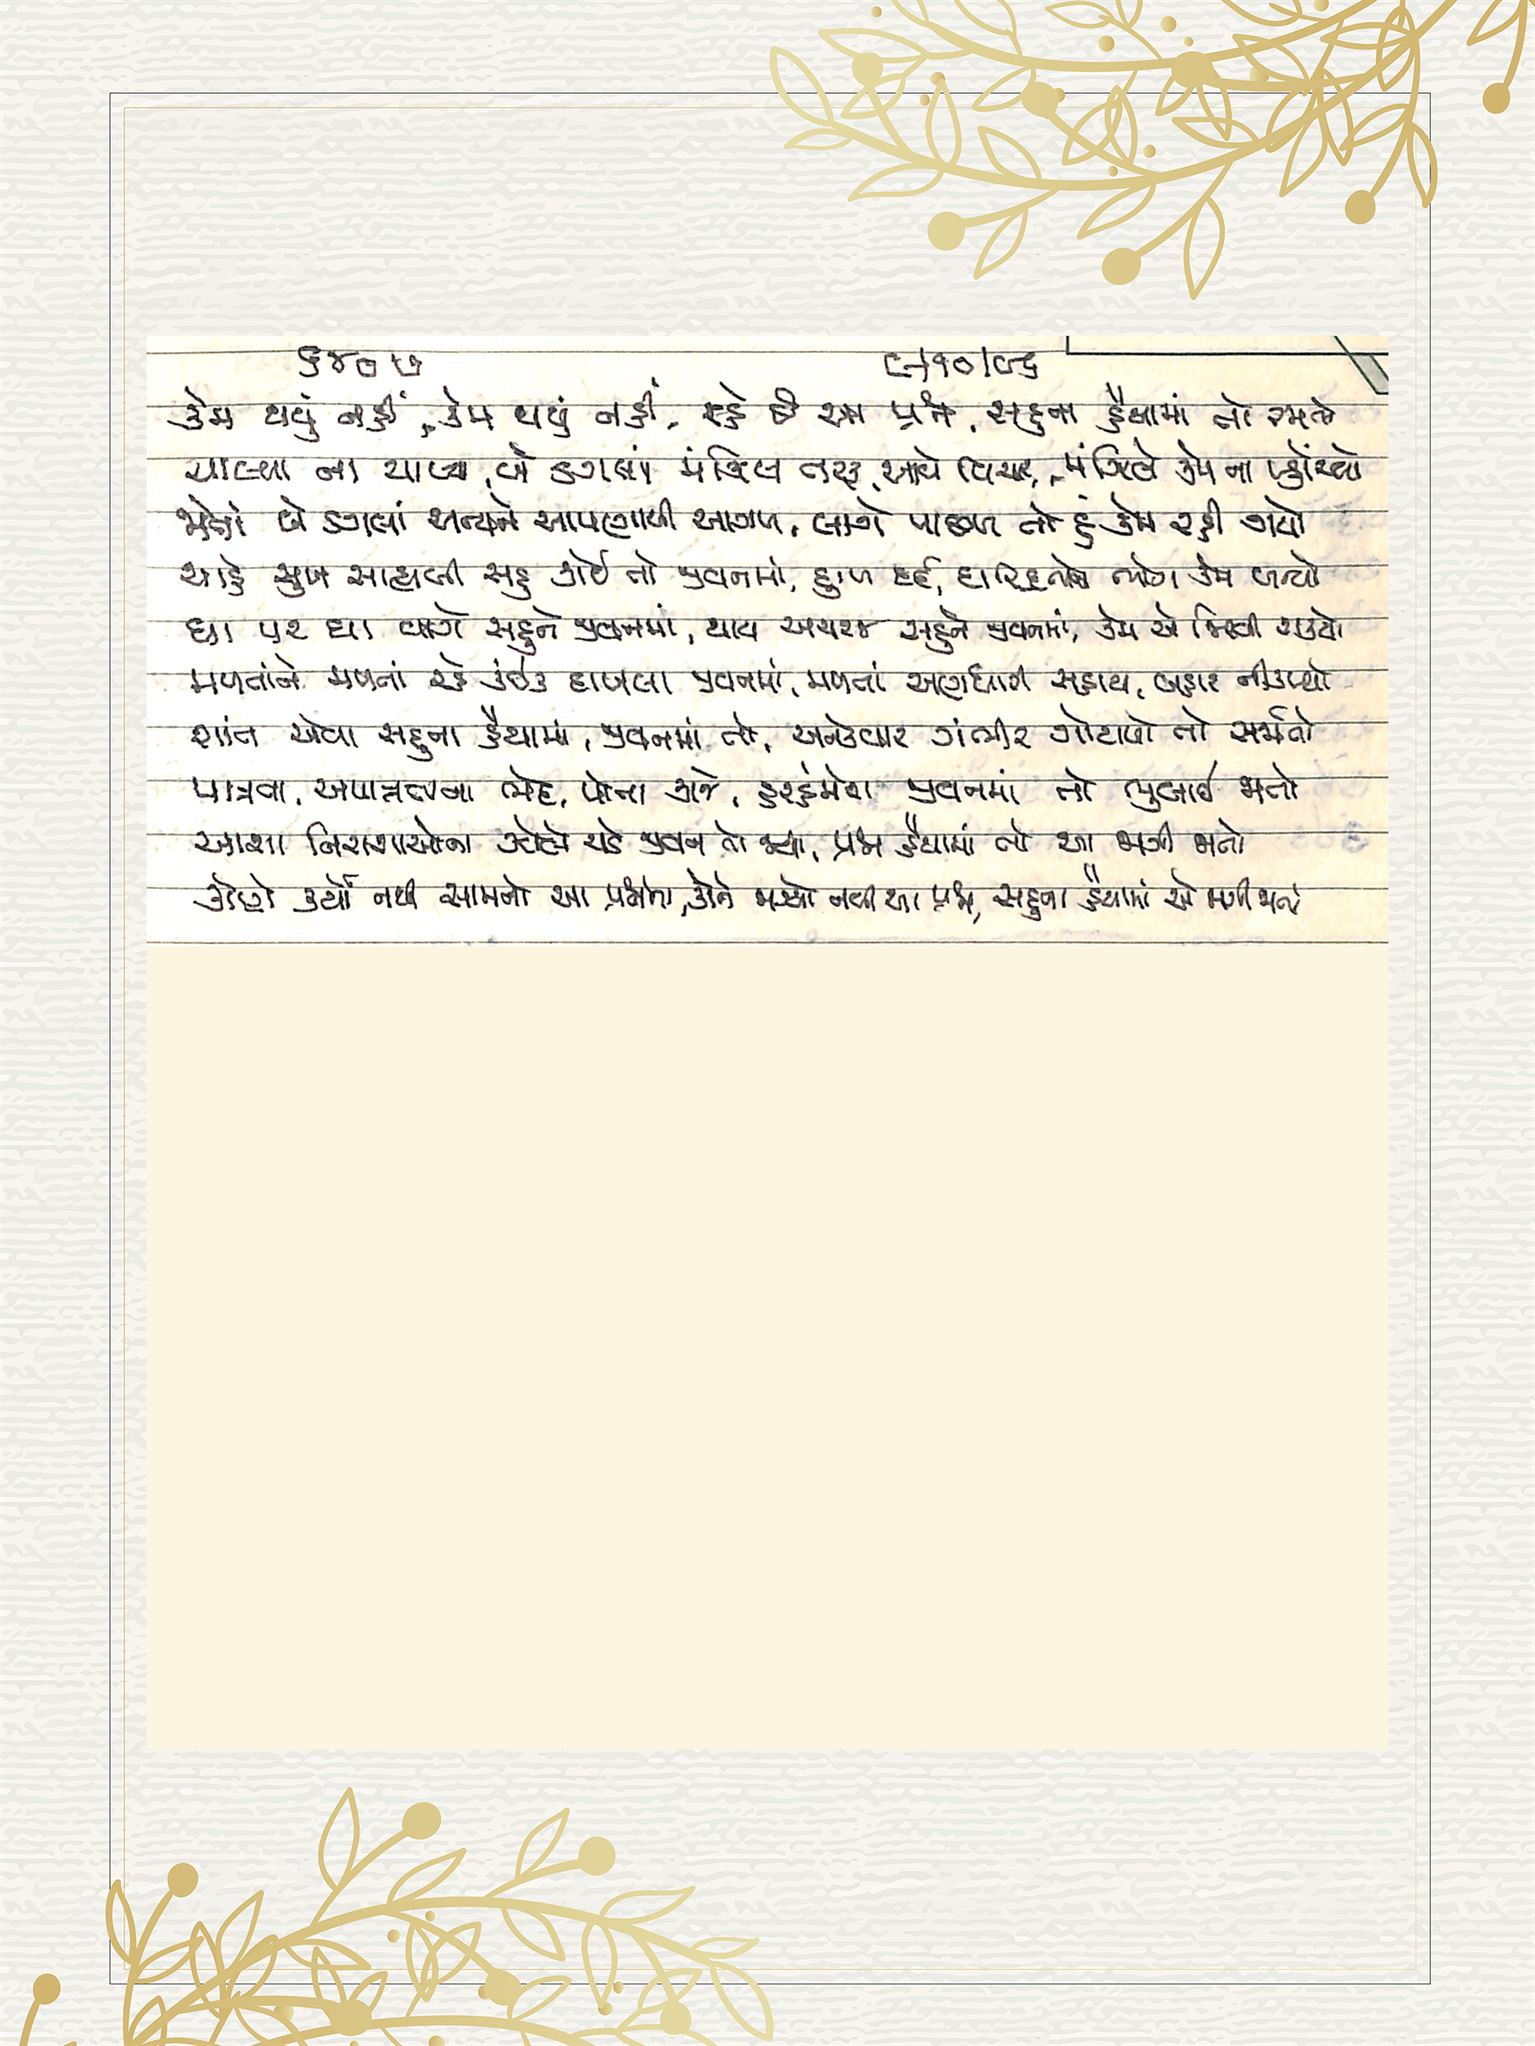 ૬૪૦૭ ૯/૧૦/૯૬
કેમ થયું નહીં, કેમ થયું નહીં, રહે છે આ પ્રશ્ન, સહુના હૈયામાં તો
ચાલ્યા ના ચાલ્યા, બે ડગલાં મંઝિલ તરફ, આવે વિચાર, મંઝિલે કેમ ના પ્હોંચ્યો
બે ડગલાં અન્યને આપણાથી આગળ, લાગે પાછળ તો હું કેમ રહી ગયો
ચાહે સુખ સાહ્યબી સહુ કોઈ તો જીવનમાં, દુઃખ દર્દ, ભોગ કેમ બન્યો
ઘા પર ઘા વાગે સહુને જીવનમાં, થાય અચરજ સહુને જીવનમાં, કેમ એ ઝિલી શક્યો
મળતાંને મળતાં રહે કંઈક દાખલા જીવનમાં, મળતાં અણધારી સહાય, બહાર નીકળ્યો
શાંત એવા સહુના હૈયામાં, જીવનમાં તો, અનેકવાર ગંભીર ગોટાળો તો સર્જાતો
પાત્રતા, અપાત્રતાના ભેદ, પોતા કાજે, હરહંમેશ જીવનમાં તો ભુલાઈ જાતો
આશા નિરાશાઓના ઝોલે ચડે જીવન તો જ્યાં, પ્રશ્ન હૈયામાં તો આ જાગી જાતો
કોણે કર્યો નથી સામનો આ પ્રશ્નનો, કોને જાગ્યો નથી આ પ્રશ્ન, સહુના હૈયામાં એ જાગી જાતો